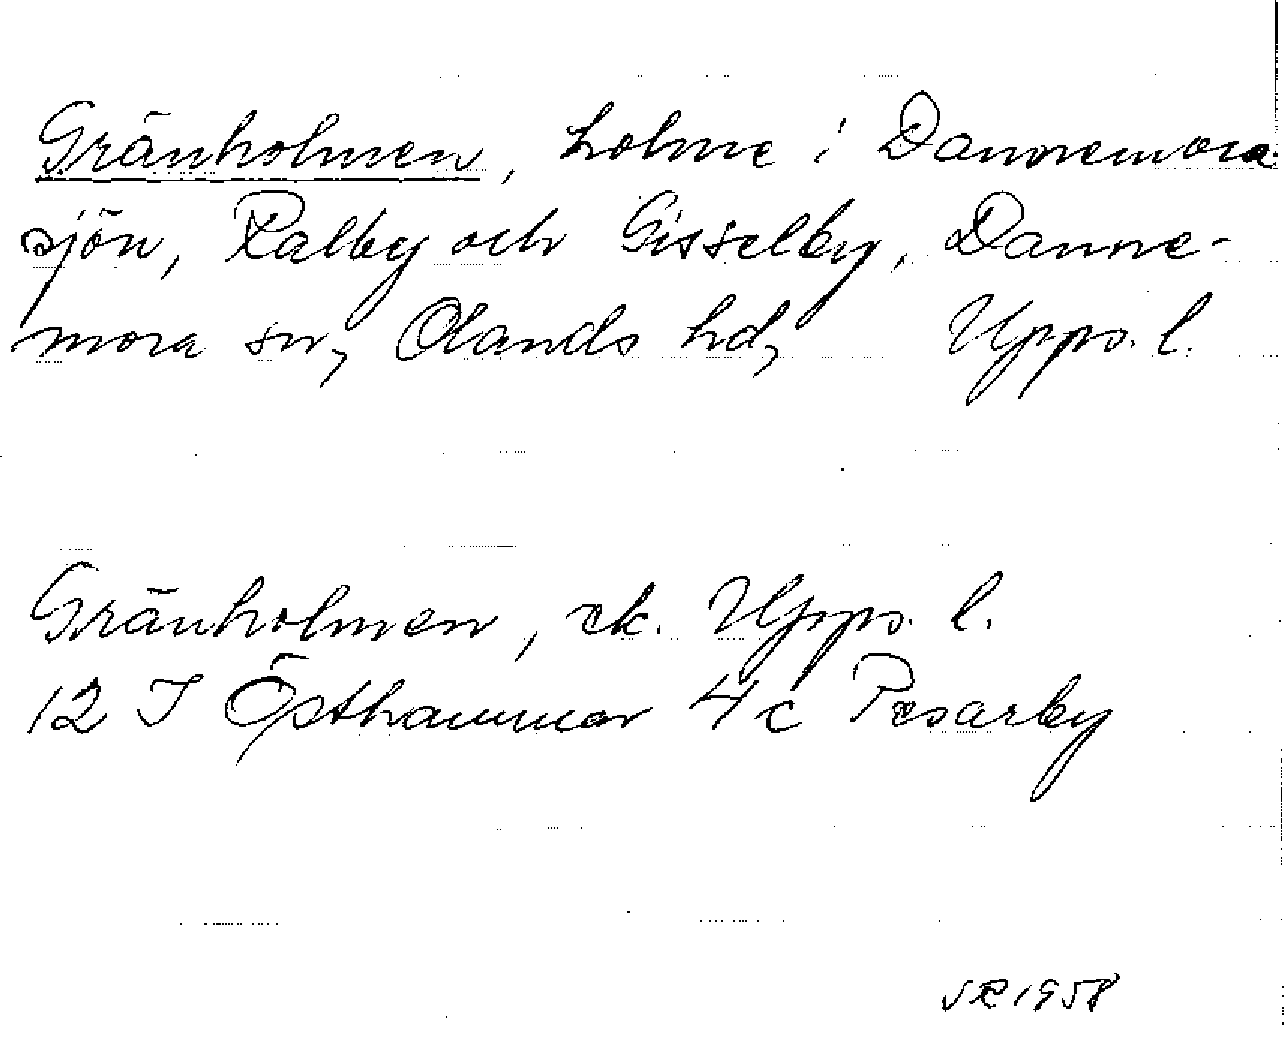 Gränholmen, holme i Dannemora-
sjön, Ralby och Gisselby, Danne-
mora sn, Olands hd, Upps. l.
Gränholmen, ek. Upps. l.
12 I Östhammar 4 c Pesarby
SR 1958